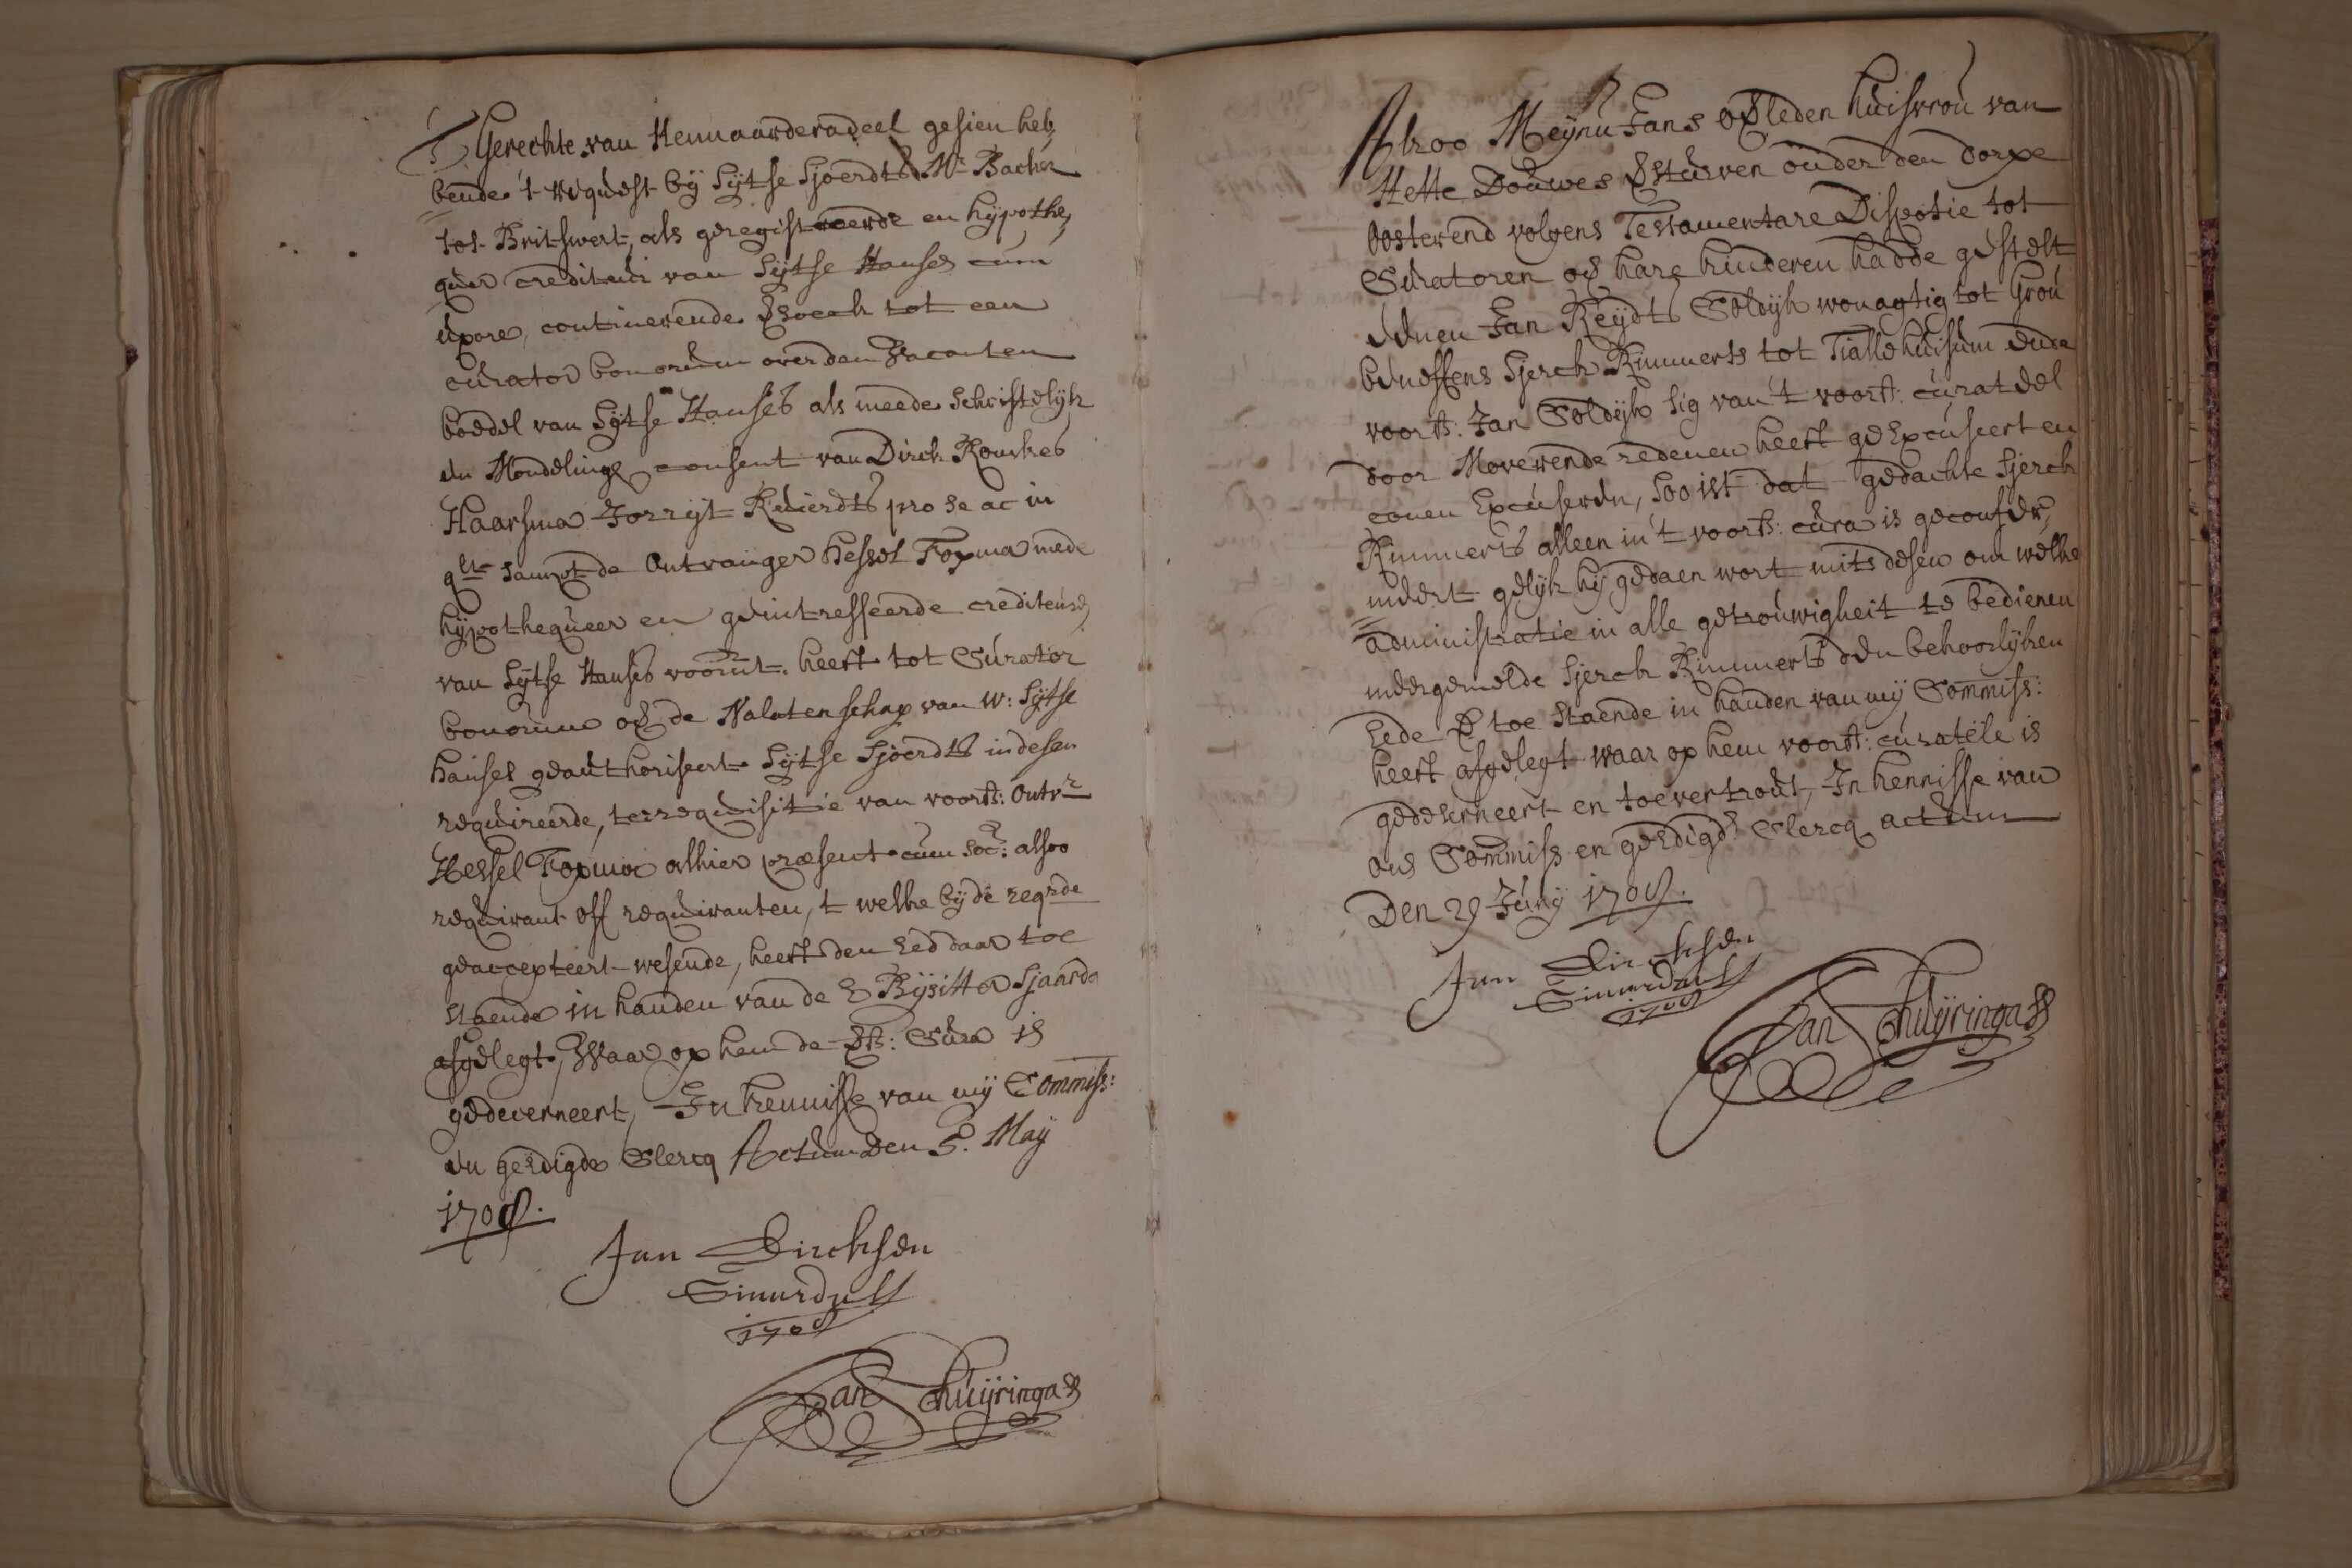 't Gerechte van Hennaarderadeel gesien heb,
bende 't request by Sytse Sjoerdts Mr Backer
tot Britswert, als geregistreerde en hypothe,
quer crediteur van Sytse Hanses cum
uxore, continerende versoeck tot een
curator bonorum over den vacanten
boedel van Sytse Hanses als meede schriftelijk
en Mondelinge consent van Dirck Rouckes
Haarsma Jorryt Ruierdts pro se ac in
qlte sampt de Ontvanger Hessel Foxma mede
hypothequeer en geintresseerde crediteur,
van Sytse Hanses voornt. heeft tot Curator
bonorum over de Nalatenschap van w: Sytse
hanses geauthoriseert Sytse Sjoerdts in desen
requireerde, ter requisitie van voors: Ontvr
Hessel Foxma alhier præsent cum soc: alsoo
requirant off requiranten, 't welke by de reqrde
geaccepteert wesende, heeft den eed daar toe
staende in handen van de E Bysitter Sjaarda
afgelegt, Waar op hem de vs: Cura is
gedecerneert, In kennisse van my Commiss:
en geedigde Clercq Actum den 5. May
1708.
Jan Dirchsen
1708
Jan Schuyringa
Alsoo Meynu Jans overleden huisvrou van
Hette Douwes versturven onder den dorpe
Oosterend volgens Testamentare Dispotie tot
Curatoren over hare kinderen hadde gestelt
eenen Jan Reydts Soldyk wonagtig tot Grou
beneffens Sjerck Rimmerts tot Tiallehuisum ende
voors: Jan Soldyk sig van 't voors: curateel
door Moverende redenen heeft geExcuseert en
conen Excuseren, soo ist dat gedachte Sjerck
Rimmerts alleen in 't voors: cura is geconfir,
meert gelyk hy gedaen wort mits desen om welke
administratie in alle getrouwigheit te bedienen
meergemelde Sjerck Rimmerts den behoorlyken
Eede er toe staende in handen van my Commiss:
heeft afgelegt waar op hem voors: curatele is
gedeserneert en toevertrout, In kennisse van
ons Commiss en geedigde Clercq actum
Den 29 Juny 1708.
Jan Dirchsen
1708
Jan Schuyringa